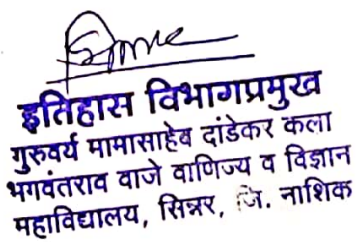 इतिहास विभागप्रमुख
गुरुवर्य मामासाहेब दांडेकर कला
भगवंतराव वाजे वाणिज्य व विज्ञान
महाविद्यालय, सिन्नर, जि. नाशिक